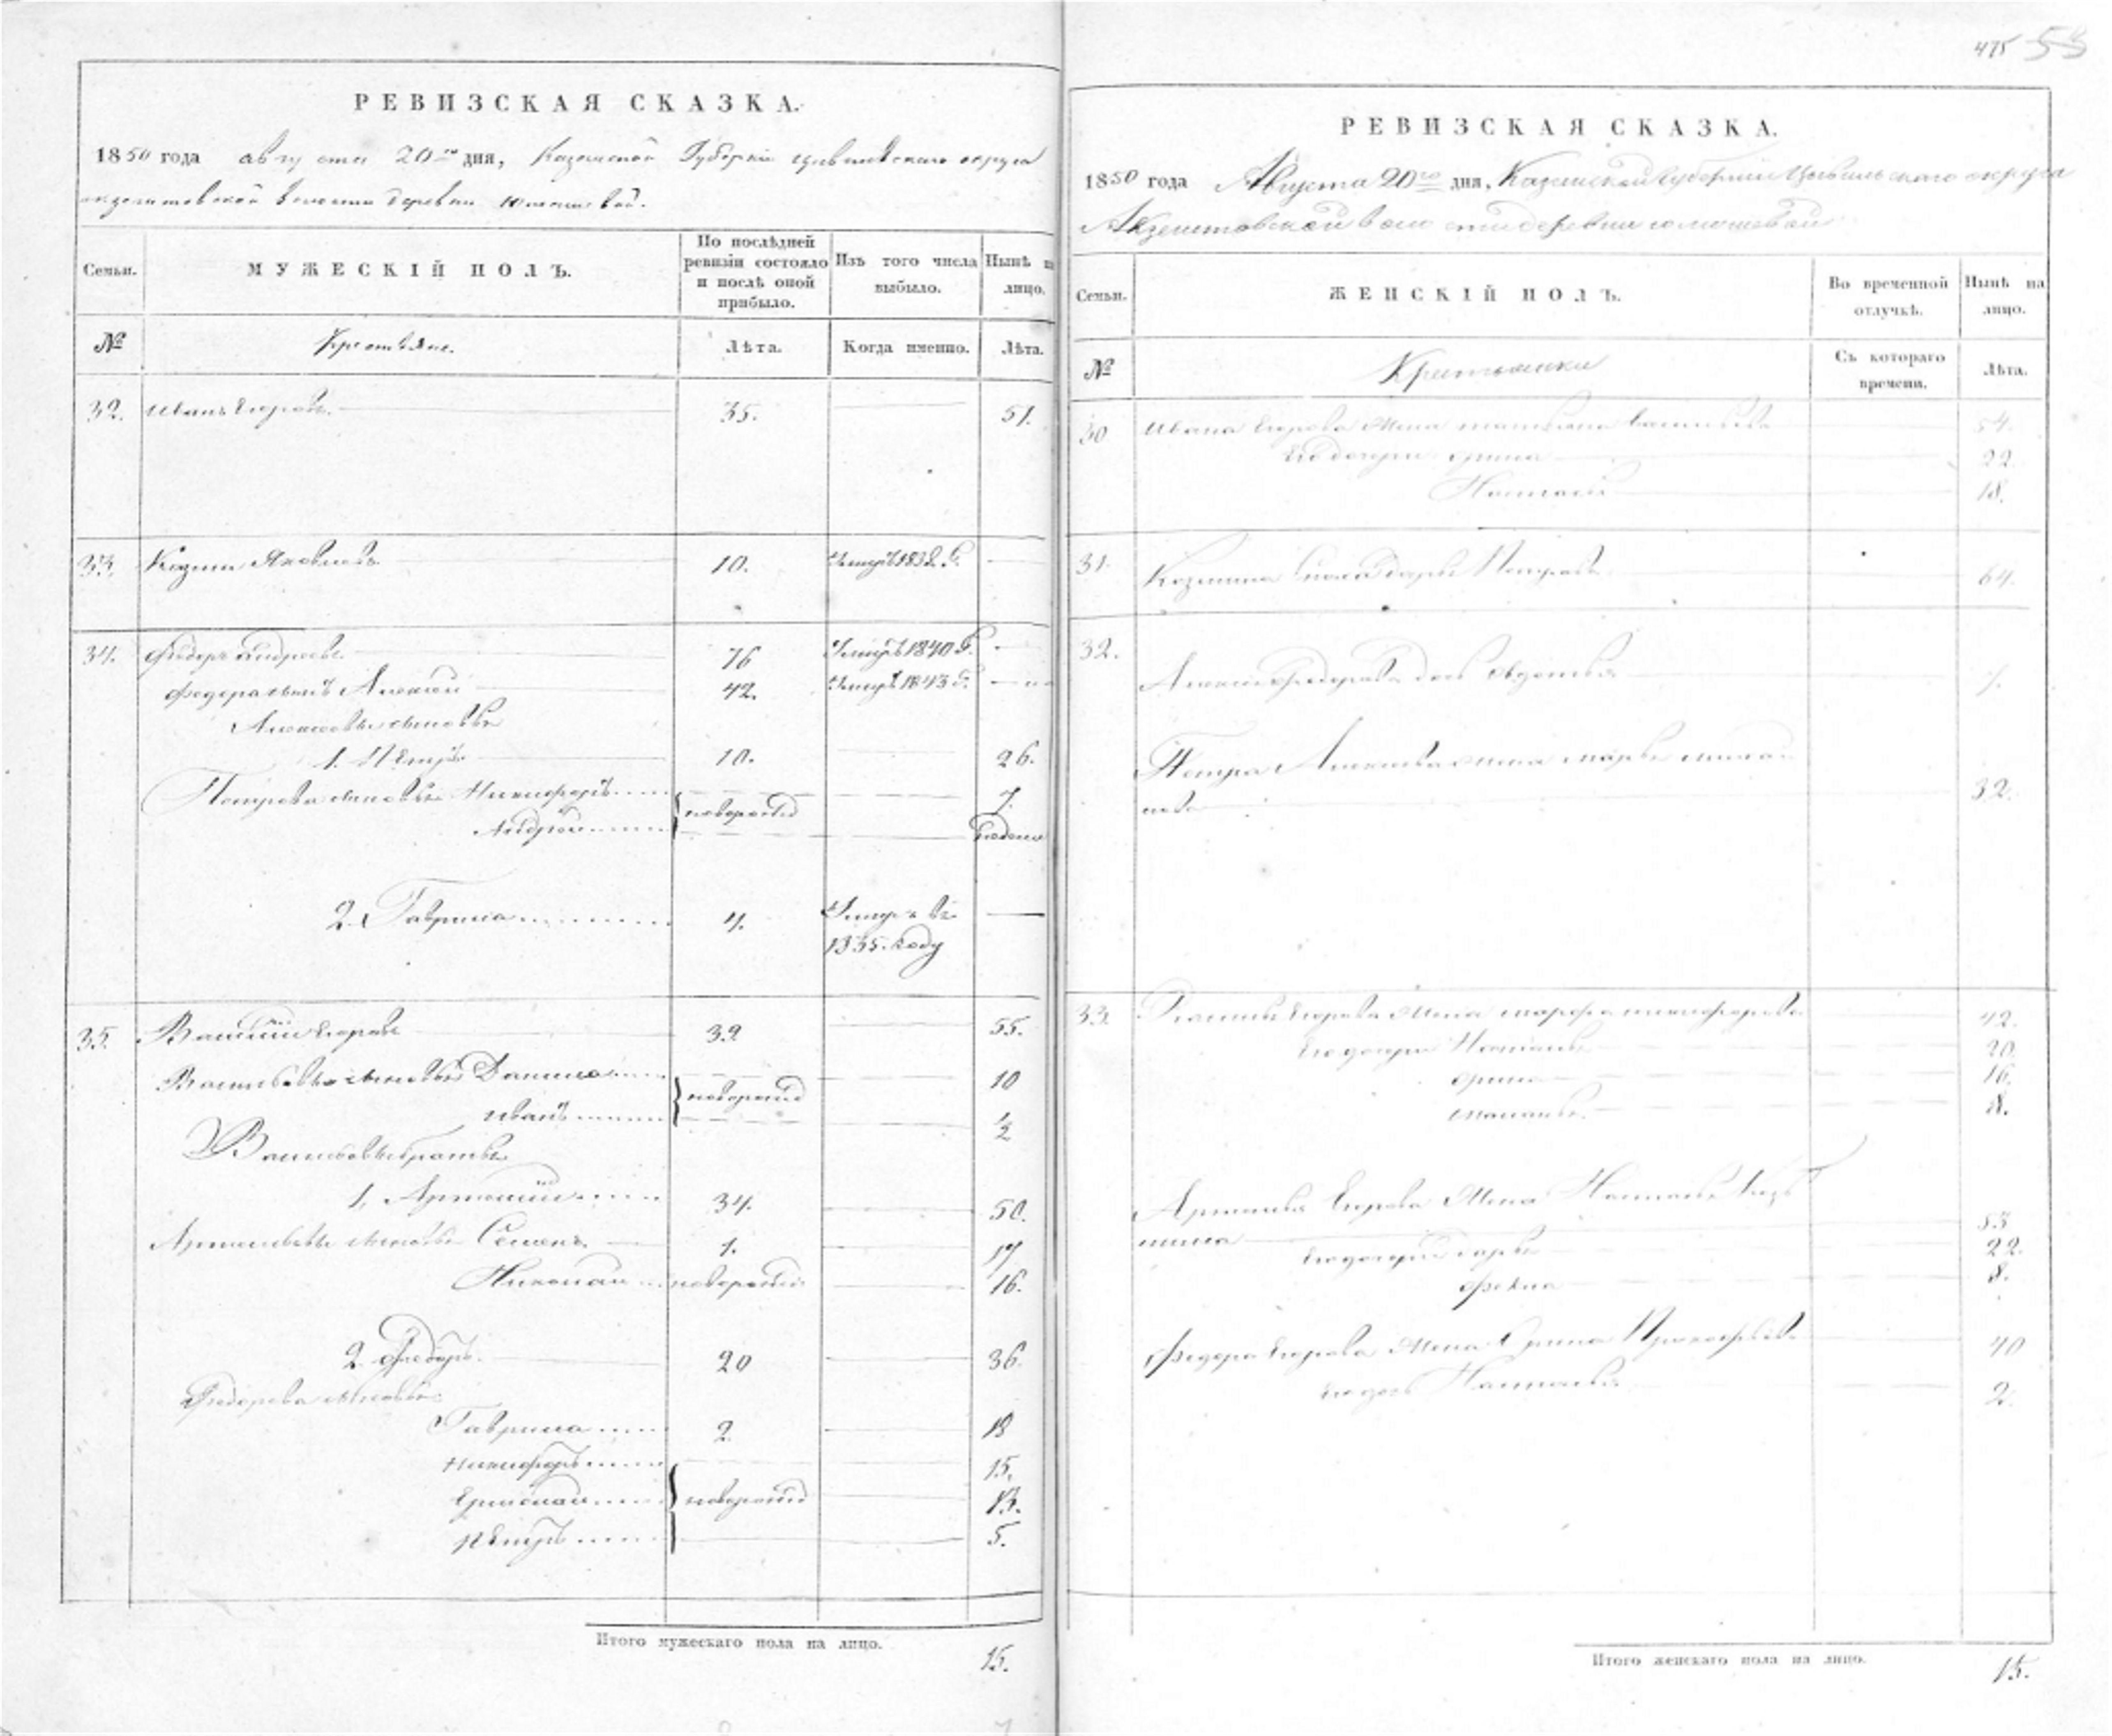 475 53
РЕВИЗСКАЯ СКАЗКА.
1850 года августа 20го дня, Казанской Губернiи Цывильскаго округа
волости деревни
Семьи.
МУЖЕСКIЙ ПОЛЪ.
По послѣдней ревизiи состояло и послѣ оной прибыло.
Изъ того числа выбыло.
Нынѣ на лицо.
№
Крестьяне.
Лѣта.
Когда именно.
Лѣта.
32. Иванъ Егоровъ 35. 51.
33. Козма Яковлевъ 10. Умеръ 1838. г.
34. Федоръ Андреевъ 76 Умеръ 1840 г.
Федора сынъ Алексей 42. Умеръ 1843 г.
Алексеевы сыновья
1. Петръ 10. 26.
Петрова сыновья Никифоръ новорожд 7.
Андрей
2. Гаврила 4. Умеръ въ
1835. году
35. Василiй Егоровъ 39 55.
Васильевы сыновья Данила новорожд 10
Иванъ ½
Васильевы братья
1. Артемiй 34. 50.
Артемьевы сыновья Семенъ 1. 17
Николай новорожд 16.
2. Федоръ 20 36.
Федорова сыновья
Гаврила 2. 18
Никифоръ 15.
Ермолай новорожд 13.
Петръ 5.
Итого мужескаго пола на лицо. 15.
РЕВИЗСКАЯ СКАЗКА.
1850 года Августа 20го дня, Казанской Губернiи Цывильскаго округа
деревни
Семьи.
ЖЕНСКIЙ ПОЛЪ.
Во временной отлучкѣ.
Нынѣ на лицо.
№
Крестьянки
Съ котораго времени.
Лѣта.
30 Ивана Егорова жена Татьяна Васильева 54.
Его дочери Орина 22.
Настасья 18.
31. Козмина Дарья Петрова 64.
32. Алексея Федорова дочь Авдотья
Петра Алексеева жена Марья
32.
33. Василья Егорова жена Марфа Никифорова 42.
Его дочери Настасья 20.
Орина 16.
Маланья 8.
Артемья Егорова жена Настасья
53
Его дочери Дарья 22.
Фекла 8.
Федора Егорова жена Орина Прокофьева 40
Его дочь Настасья 2.
Итого женскаго пола на лицо. 15.